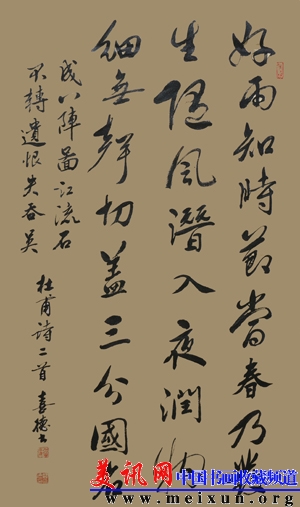 好雨知時節當春乃發
生隨風潛入夜潤物
細無聲功盖三分國名
成八陣圖江流石
不轉遺恨失吞吴
杜甫詩二首 喜德书
美讯网 中国书画收藏频道
www.meixun.org